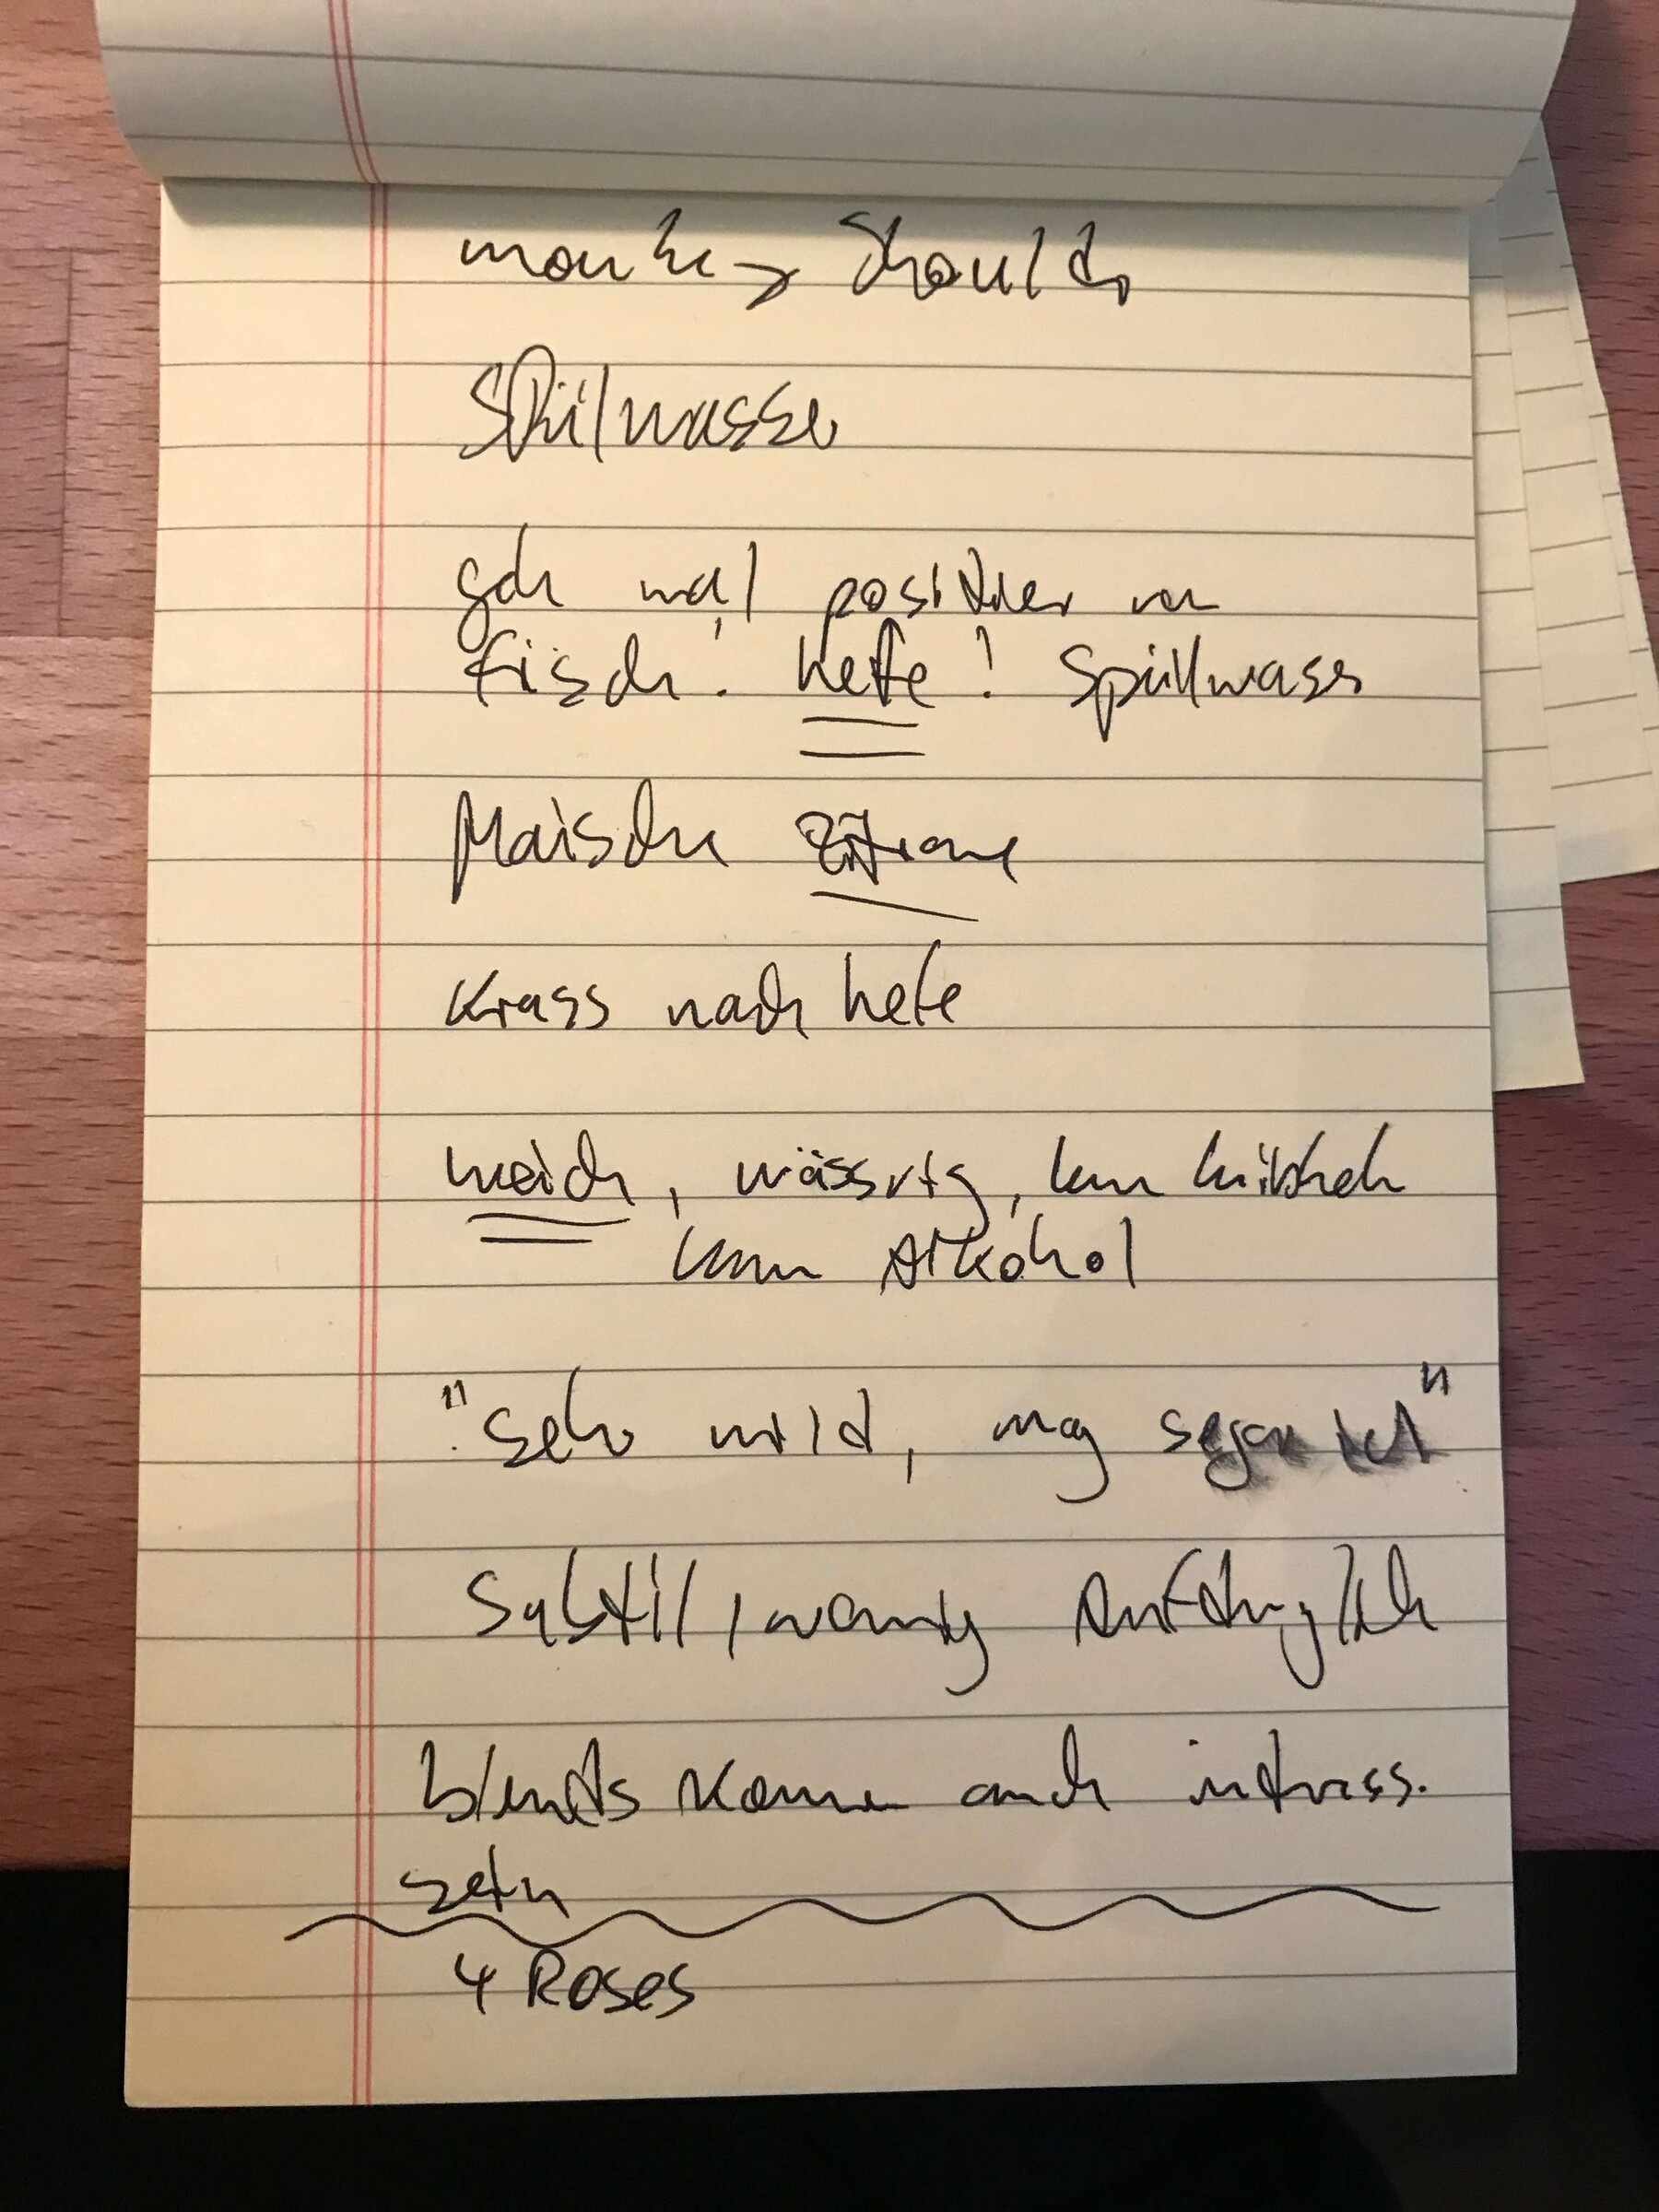 monkey Shoulder
Spülwasser
geh mal positiver ran
Fisch! Hefe! Spüllwasser
Maische Zitrone
Krass nach hefe
weich, wässrig, kaum
kaum Alkohol
"sehr mild, mag
Subtil, wenig Anfänglich
blends können auch intress.
sein
4 Roses